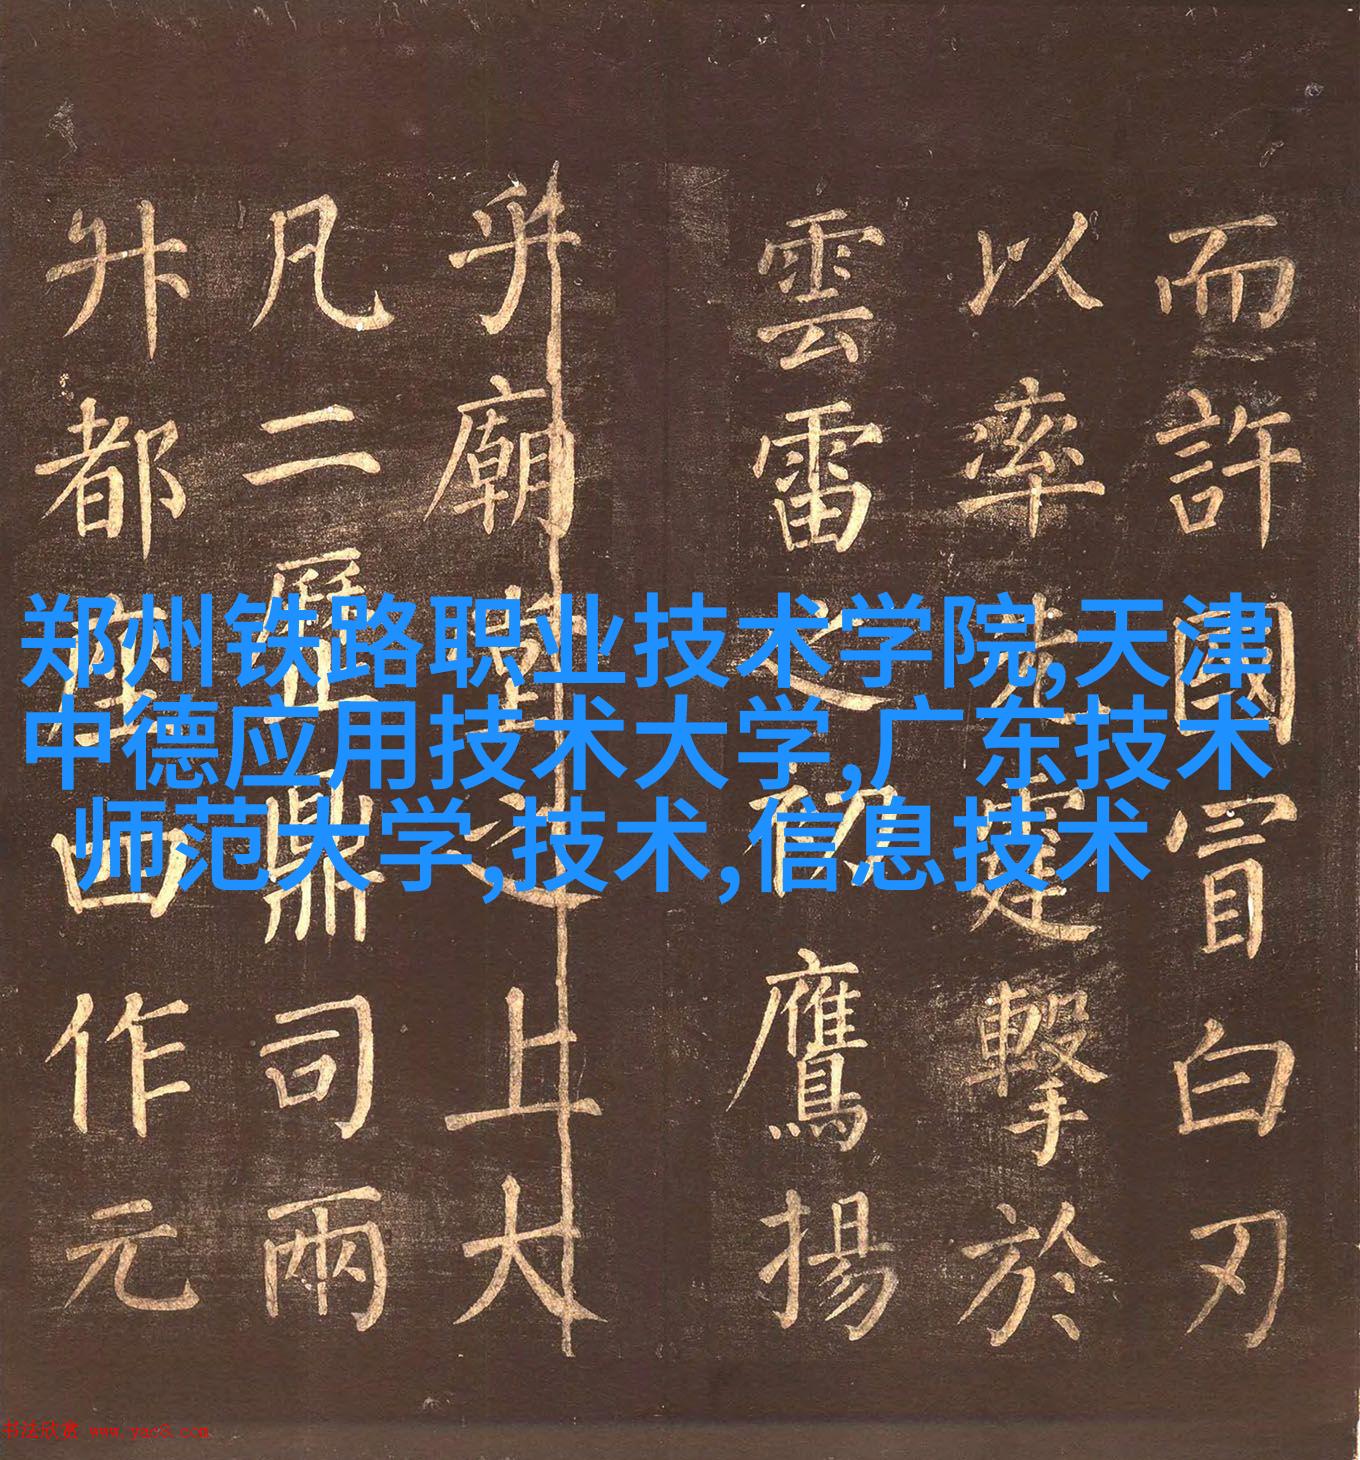 而許國冒白刃
以率先霆擊於
雲雷之初鷹揚
乎廟堂之上大
凡二歷鼎司兩
升都座四作元
郑州铁路职业技术学院,天津
中德应用技术大学,广东技术
师范大学,技术,信息技术
书法欣赏 www.yac8.com